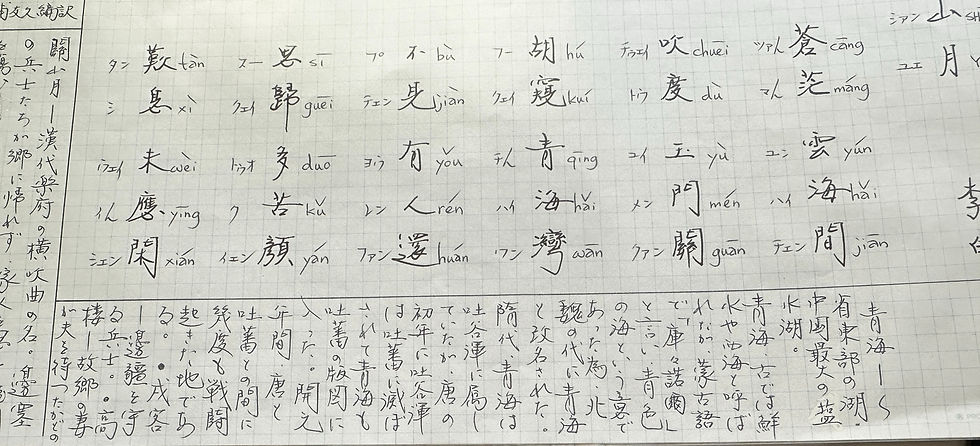 シアン 山 SH
ユエ 月 Y
李
ツァん 蒼 cāng
マん 茫 máng
ユン 雲 yún
ハイ 海 hǎi
チェン 間 jiān
チゥエイ 吹 chuēi
トゥ 度 dù
ユイ 玉 yù
メン 門 mén
クァン 關 guān
フー 胡 hú
クェイ 窺 kuí
チん 青 qīng
ハイ 海 hǎi
ワン 灣 wān
プ 不 bù
チェン 見 jiàn
ヨウ 有 yǒu
レン 人 rén
ファン 還 huán
スー 思 sī
クェイ 歸 guēi
トゥオ 多 duō
ク 苦 kǔ
イェン 顔 yán
タン 歎 tàn
シ 息 xì
ウェイ 未 wèi
イん 應 yīng
シェン 閑 xián
青海ー
省東部の湖。
中国最大の塩
水湖。
青海 古では鮮
水や西海と呼ば
れたが 蒙古語
で「庫々諾爾」
と言い、青色
の海という意で
あった為、北
魏の代に青海
と改名された。
隋代 青海は
吐谷渾に属し
ていたが、唐の
初年に吐谷渾
は吐蕃に滅ぼ
されて青海も
吐蕃の版図に
入った。開元
年間、唐と
吐蕃との間に
幾度も戦闘
起きた地であ
る。●戍客
ー邊疆を守
る兵士。●高
楼ー故郷の妻
が夫を待つ
關山月ー漢代楽府の横吹曲の名。邊塞
の兵士たちが郷に帰れず 家人
文久編訳